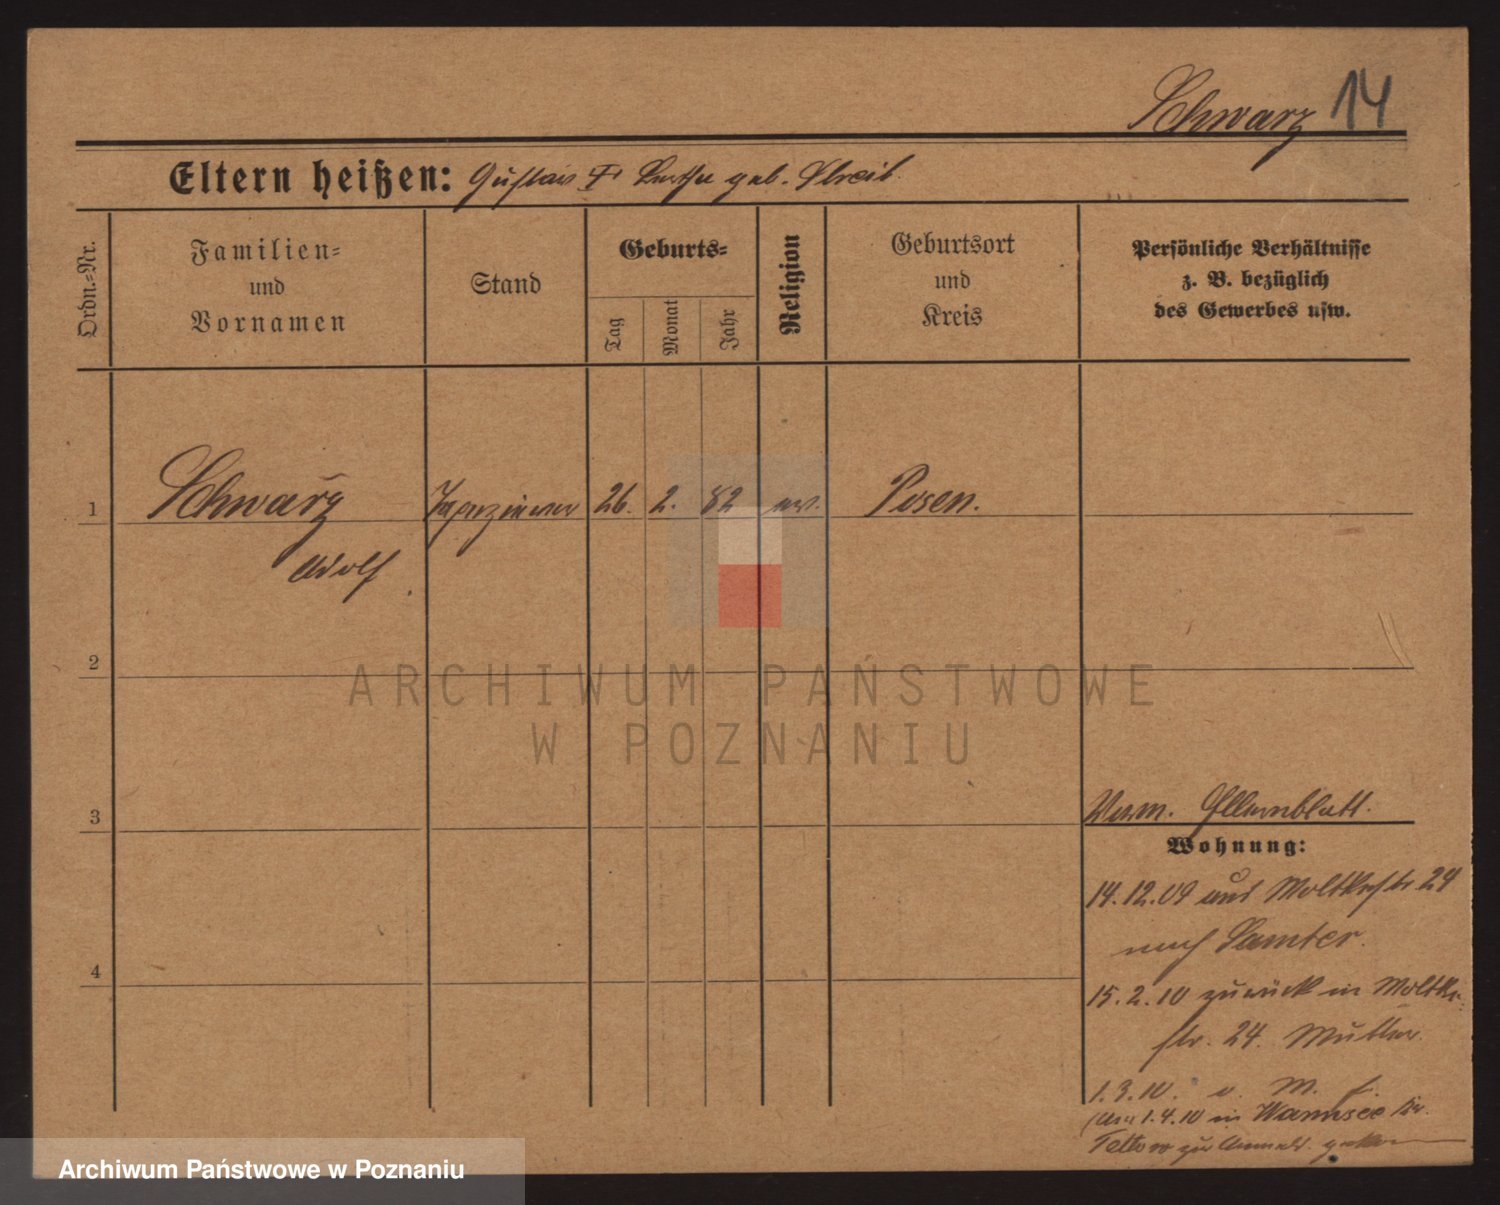 Schwarz 14
Eltern heißen: Gustav u. geb. Streit.
Ordn.-Nr.
Familien-
und
Vornamen
Stand
Geburts-
Tag
Monat
Jahr
Religion
Geburtsort
und
Kreis
Persönliche Verhältnisse
z. B. bezüglich
des Gewerbes usw.
1 Schwarz Tapezierer 26. 2. 82 ev. Posen.
Adolf
2
3
4
ARCHIWUM PAŃSTWOWE
W POZNANIU
Elternblatt.
Wohnung:
14.12.09 aus Moltkestr. 24
nach Samter.
15.2.10 zurück in Moltke-
str. 24. Mutter.
1.3.10. v. M.
1.4.10 in Wannsee Kr.
Teltow zur
Archiwum Państwowe w Poznaniu